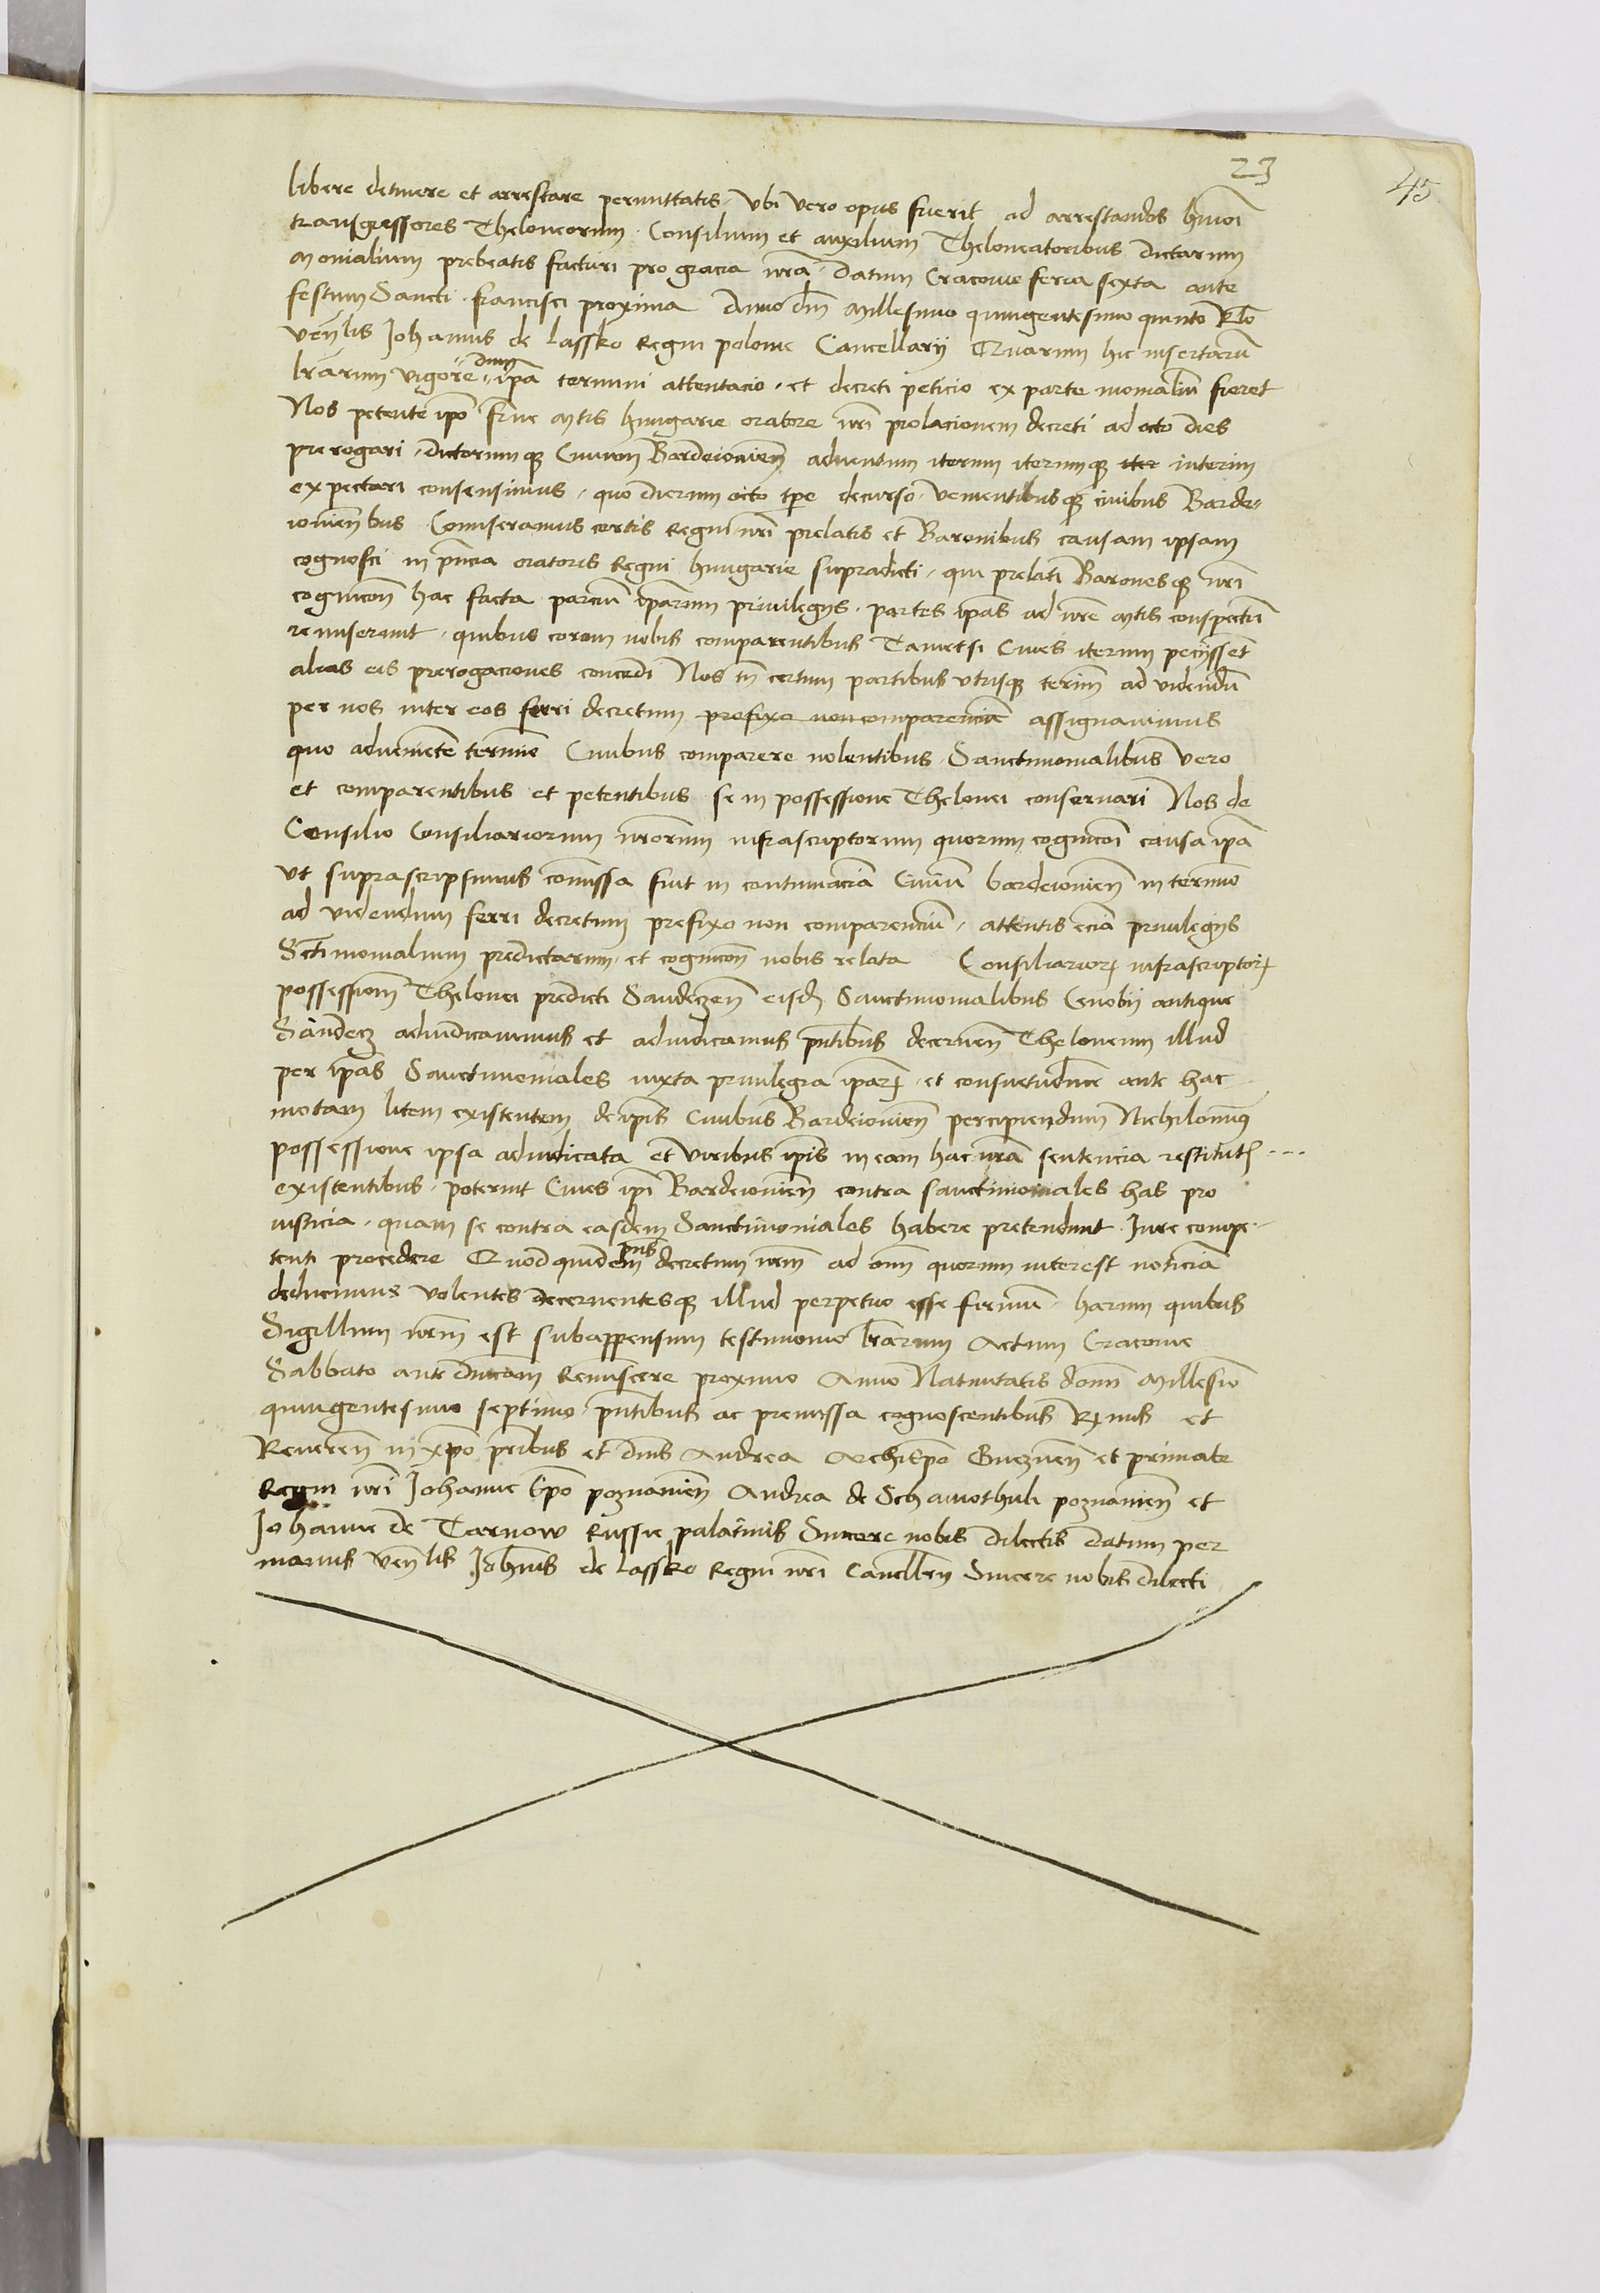 23
45
libere detinere et arrestare permittatis. Vbi vero opus fuerit ad arrestandos hmoi
transgressores Theloneorum. Consilium et auxilium Theloneatoribus dictarum
Monialium prebeatis facturi pro gracia nra. Datum Cracouie feria sexta ante
festum Sancti francisci proxima Anno dni Millesimo quingentesimo quinto Rlo
venlis Johannis de Lassko Regni polonie Cancellarij Quarum hic insertaru
lrarum vigore dum ipa termini attentacio. et decreti peticio ex parte monialiu fieret
Nos petente ipo Sme Mtis hungarie oratore nri prolacionem decreti ad octo dies
prerogari. dictorumq Ciuium Bardeiouien aduentum iterum iterumq iter interim
expectari consensimus. quo dierum octo tpe decurso. venientibusq ciuibus Barde-
iouienbus Comiseramus certis Regni nri prelatis et Baronibus causam ipsam
cognosci in pncia oratoris Regni hungarie supradicti. qui prelati Baronesq nri
cognicon hac facta parciu iparum priuilegijs. partes ipas ad nre Mtis conspectu
remiserunt. quibus coram nobis comparentibus Tametsi Ciues iterum pecijssent
alias eis prerogaciones concedi Nos tn certum partibus vtrisq termin ad videndu
per nos inter eos ferri decretum prefixo non comparenciu assignauimus
quo adueniete termine Ciuibus comparere nolentibus. Sanctimonialibus vero
et comparentibus et petentibus se in possessione Thelonei conseruari Nos de
Consilio Consiliariorum nrorum infrascriptorum quorum cognicoi causa ipa
vt suprascripsimus comissa fuit in contumacia Ciuiu bardeiouien in termino
ad videndum ferri decretum prefixo non comparenciu. attentis ecia priuilegijs
Sctimonialium predictarum. et cognicon nobis relata Consiliarior infrascriptor
possessiom Thelonei predicti Sandeczen eisd Sanctimonialibus Cenobij antique
Sandecz adiudicauimus et adiudicamus pntibus decernen Theloneum illud
per ipas Sanctimoniales iuxta priuilegia ipar et consuetudine ante hac
motam litem existentem de ipis Ciuibus Bardeiouien percipiendum Nichilominus
possessione ipsa adiudicata et viribus ipis in eam hac nra sentencia restitut
existentibus. poterint Ciues ipi Bardeiouien contra sanctimoniales has pro
iusticia. quam se contra easdem Sanctimoniales habere pretendunt. Jure compe-
tenti procedere Quod quidem pns decretum nrm ad om quorum interest noticia
deducimus volentes decernentesq illud perpetuo esse firmu. harum quibus
Sigillum nrm est subappensum testimonio lrarum Actum Cracouie
Sabbato ante dnicam Reminiscere proximo Anno Natiuitatis domi Millesio
quingentesimo septimo. pntibus ac premissa cognoscentibus Rmis et
Reueren in xpo pribus et dnis Andrea Archiepo Gneznen et primate
Regni nri Johanne Epo poznanien Andrea de Schamothuli poznanien et
Johanne de Tarnow Russie palatinis Sincere nobis dilectis datum per
manus venlis Johnis de Lassko Regni nri Cancellrij Sincere nobis dilecti